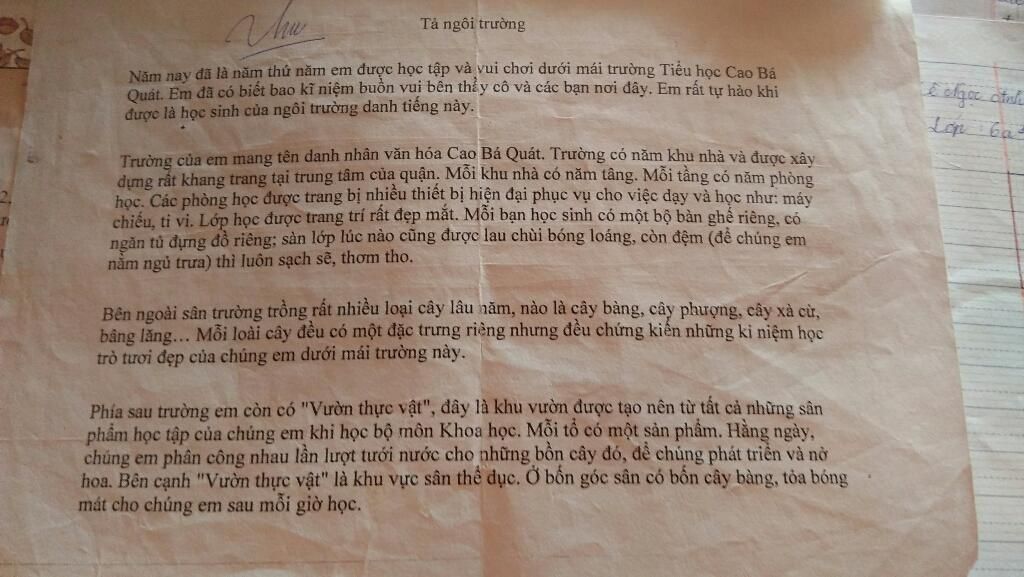 Thu
Tả ngôi trường
Năm nay đã là năm thứ năm em được học tập và vui chơi dưới mái trường Tiểu học Cao Bá
Quát. Em đã có biết bao kĩ niệm buồn vui bên thầy cô và các bạn nơi đây. Em rất tự hào khi
được là học sinh của ngôi trường danh tiếng này.
Trường của em mang tên danh nhân văn hóa Cao Bá Quát. Trường có năm khu nhà và được xây
dựng rất khang trang tại trung tâm của quận. Mỗi khu nhà có năm tầng. Mỗi tầng có năm phòng
học. Các phòng học được trang bị nhiều thiết bị hiện đại phục vụ cho việc dạy và học như: máy
chiếu, ti vi. Lớp học được trang trí rất đẹp mắt. Mỗi bạn học sinh có một bộ bàn ghế riêng, có
ngăn tủ đựng đồ riêng; sàn lớp lúc nào cũng được lau chùi bóng loáng, còn đệm (để chúng em
nằm ngủ trưa) thì luôn sạch sẽ, thơm tho.
Bên ngoài sân trường trồng rất nhiều loại cây lâu năm, nào là cây bàng, cây phượng, cây xà cừ,
bằng lăng... Mỗi loài cây đều có một đặc trưng riêng nhưng đều chứng kiến những kỉ niệm học
trò tươi đẹp của chúng em dưới mái trường này.
Phía sau trường em còn có "Vườn thực vật", đây là khu vườn được tạo nên từ tất cả những sản
phẩm học tập của chúng em khi học bộ môn Khoa học. Mỗi tổ có một sản phẩm. Hằng ngày,
chúng em phân công nhau lần lượt tưới nước cho những bồn cây đó, để chúng phát triển và nở
hoa. Bên cạnh "Vườn thực vật" là khu vực sân thể dục. Ở bốn góc sân có bốn cây bàng, tỏa bóng
mát cho chúng em sau mỗi giờ học.
Ngọc
Lớp : 6a